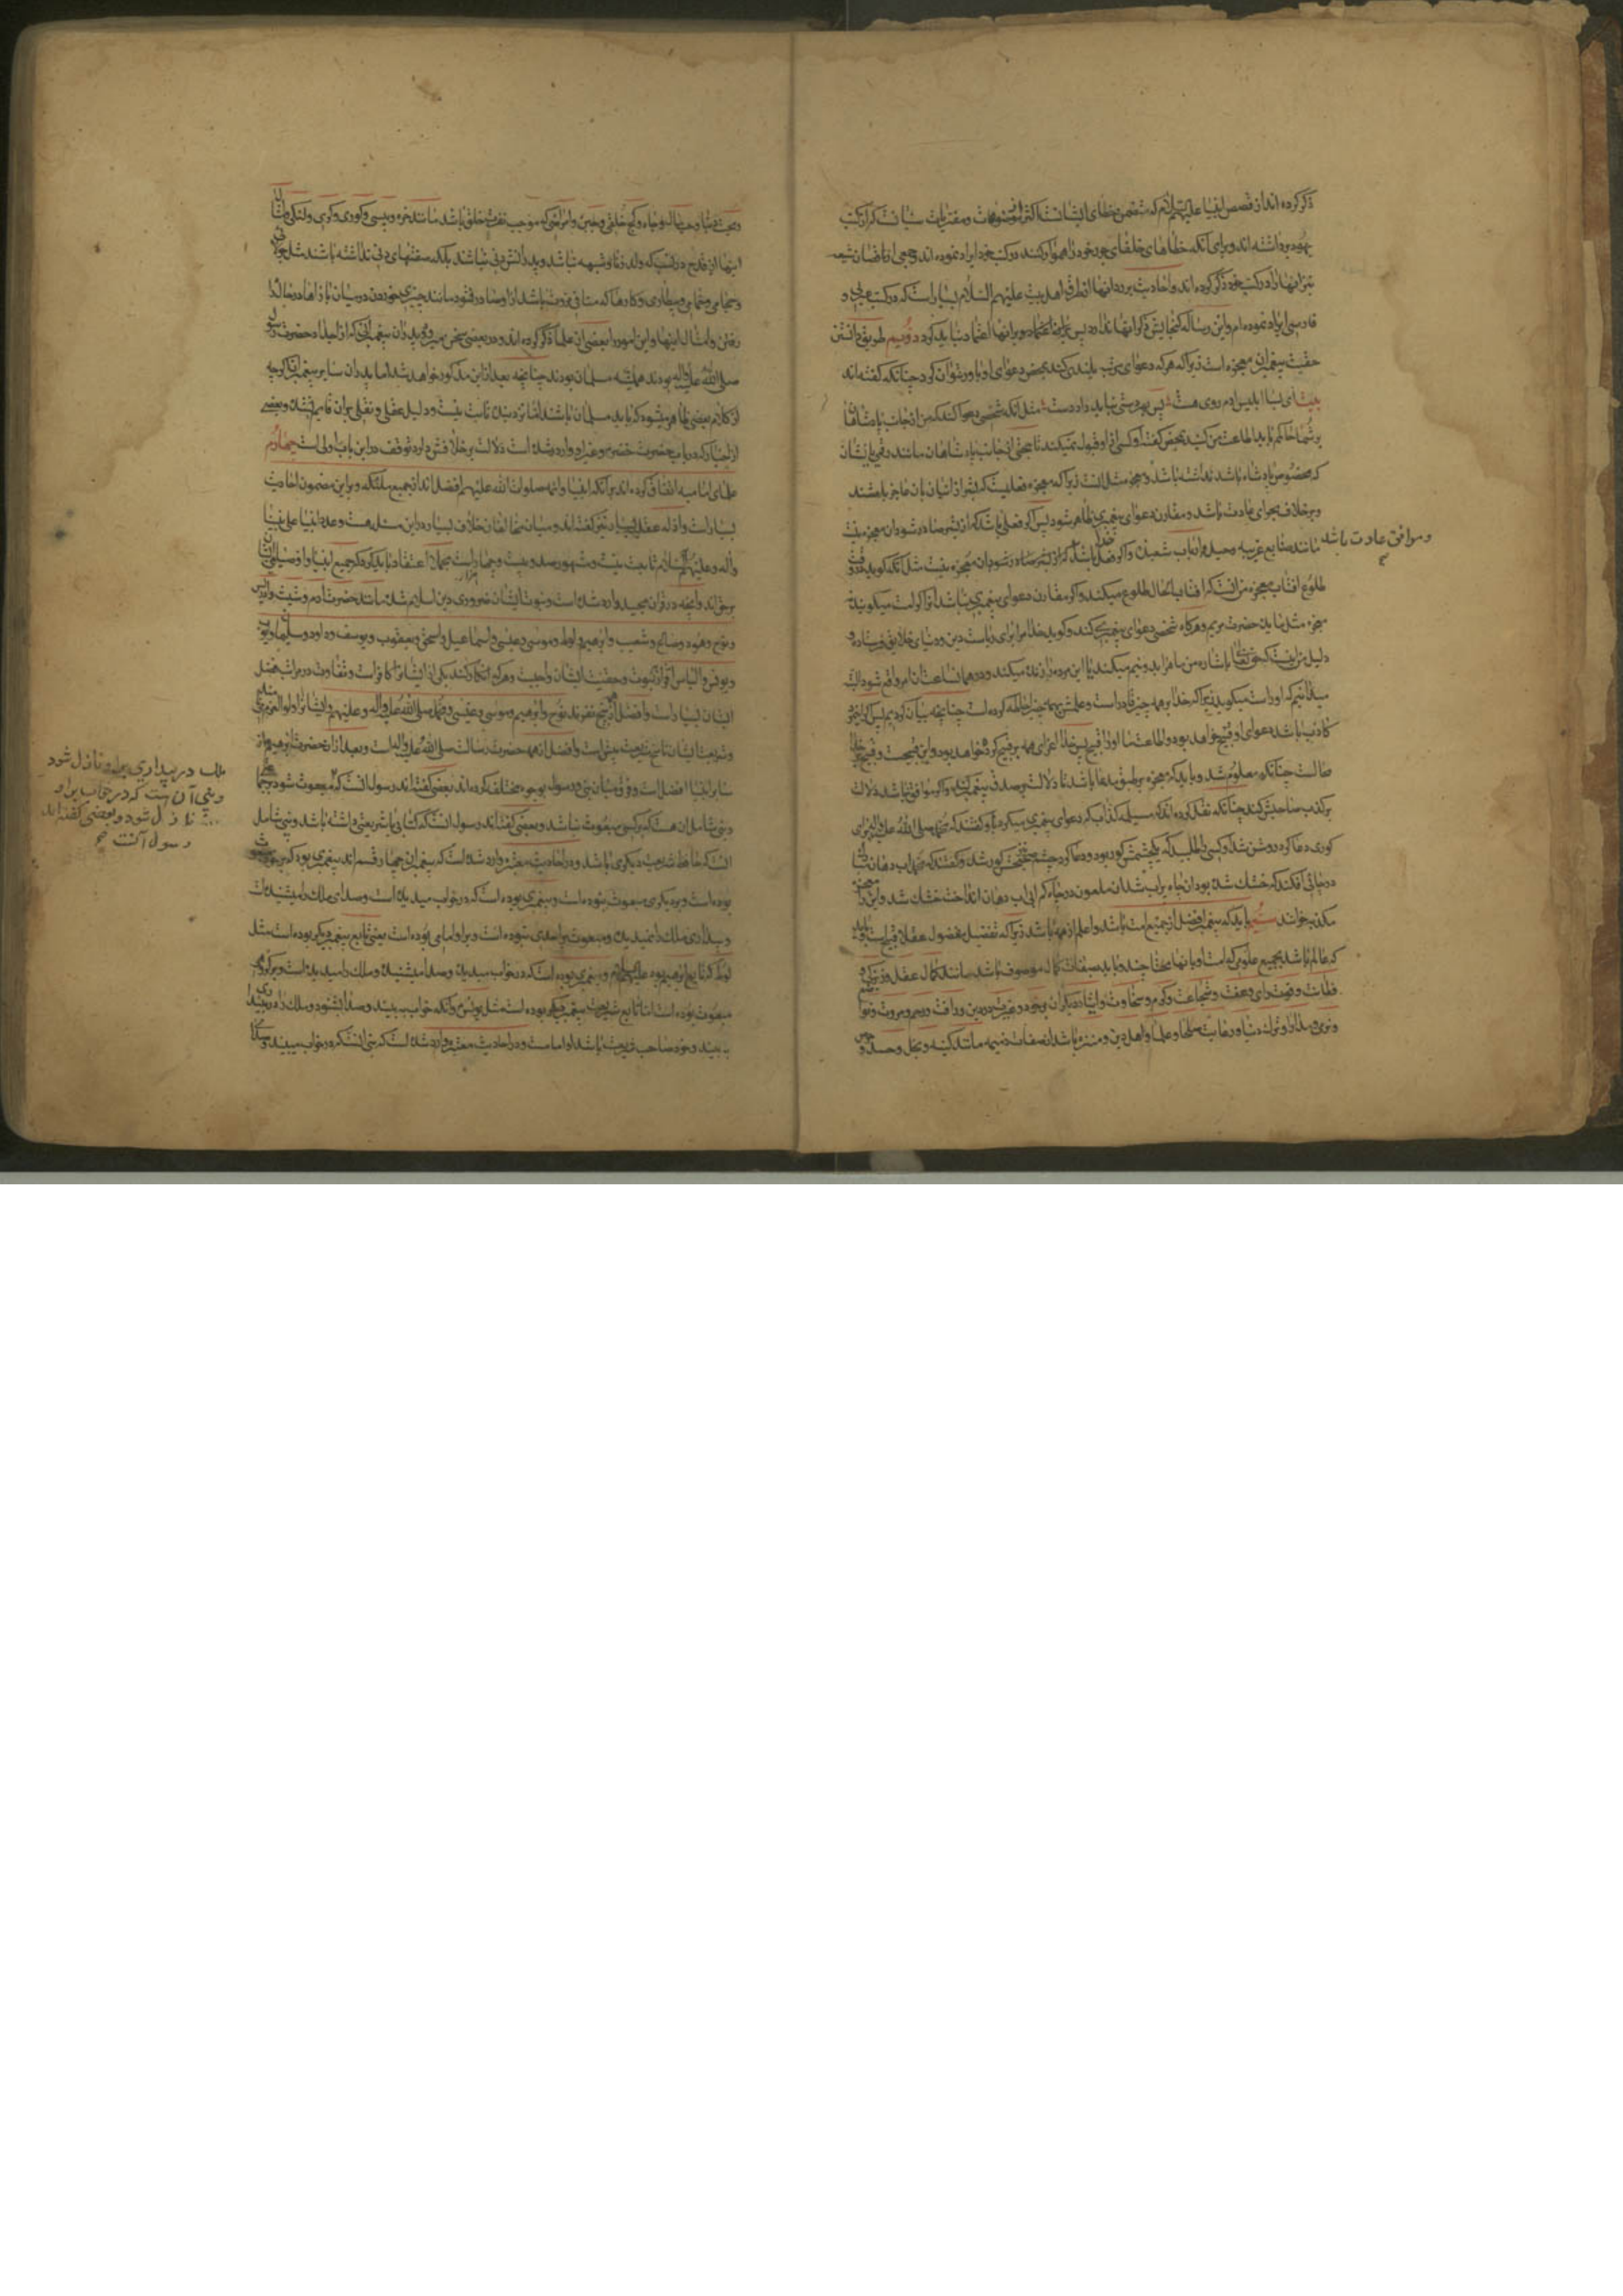 ذکر کرده اند از قصص انبیا علیهم السلام که متضمن خطای ایشانست اکثر از موضوعات و مفتریات سنیانست که از کتب
یهود برداشته اند و برای آنکه خطاهای خلفای جور خود را هموار کنند در کتب خود ایراد نموده اند و جمعی از ناقصان شیعه
نیز اینها را در کتب خود ذکر کرده اند و احادیث بر رد اینها از طرق اهل بیت علیهم السلام بسیار است که در کتب عربی و
فارسی ایراد نموده ام و این رساله گنجایش ذکر آنها ندارد پس بر اینها اعتماد نباید کرد دویم طریق دانستن
حقیت پیغمبران معجزه است زیرا که هر که دعوای مرتبه بلندی کند بمحض دعوای او باور نتوان کرد چنانکه گفته اند
بیت ای بسا ابلیس آدم روی هست پس بهر دستی نباید داد دست مثل آنکه شخصی دعوا کند که من از جانب پادشاه
بر شما حاکم باید اطاعت من کنید بمحض گفتن او کسی از او قبول نمیکند تا حجتی از جانب پادشاهان مانند رقمی یا نشان
که مخصوص پادشاه باشد نداشته باشد و معجزه مثل آنست زیرا که معجزه فعلیست که بشر از اتیان بآن عاجز باشند
و بر خلاف مجرای عادت باشد و مقارن دعوای پیغمبری ظاهر شود پس اگر فعلی باشد که از بشر صادر شود آن معجزه نیست
مانند صنایع غریبه و حیل و ارباب شعبده و اگر فعل خدا باشد
و موافق عادت باشد
طلوع آفتاب معجزه من آنست که آفتاب الحال طلوع میکند و اگر مقارن دعوای پیغمبری نباشد آنرا کرامت میگویند نه
معجزه مثل مایده حضرت مریم و هر گاه شخصی دعوای پیغمبری کند و گوید خدا مرا برای ریاست دین و دنیای خلایق فرستاده و
دلیل من اینست که حق تعالی باشاره من ماه را بدو نیم میکند یا این مرده را زنده میکند و در همان ساعت آن امر واقع شود البته
میدانیم که او راست میگوید زیرا که خدا بر همه چیز قادر است و علمش بهمه چیز احاطه کرده است چنانچه بیان کردیم پس اگر
کاذب باشد دعوای او قبیح خواهد بود و اطاعت
محالست چنانکه معلوم شد و باید که معجزه بر طبق مدعا باشد تا دلالت بر صدق پیغمبر کند و اگر موافق نباشد دلالت
بر کذب صاحبش کند چنانکه نقل کرده اند که مسیلمه کذاب که دعوای پیغمبری میکرد باو گفتند که محمد صلی الله علیه و آله برای
کوری دعا کرد روشن شد او کسی را طلبید که یکچشمش کور بود و دعا کرد چشم صحیحش کور شد و گفتند که محمد آب دهان مبارک
در چاهی افکند که خشک شده بود آن چاه پر آب شد آن ملعون در چاه کم آبی آب دهان انداخت خشک شد و این را معجزه
مکذبه خوانند سیم باید که پیغمبر افضل از جمیع امت باشد و اعلم از همه باشد زیرا که تفضیل مفضول عقلا قبیح است و باید
که عالم باشد بجمیع علومی که امت او بآنها محتاجند و باید بصفات کمال موصوف باشد مانند کمال عقل و زیرکی و
فطانت و قوت رای و عفت و شجاعت و کرم و سخاوت و ایثار دیگران بر خود و غیرت در دین و رافت و رحم و مروت و تواضع
و نرمی و مدارا و ترک دنیا و رعایت صلحا و علما و اهل دین و منزه باشد از صفات ذمیمه مانند کینه و بخل و حسد و حرص
و محبت دنیا و کج خلقی و جبن و امراضی که موجب نفرت خلق باشد مانند خوره و پیسی و کوری و کری و لنگی و امثال
اینها از قدح در نسب که ولد زنا و شبهه نباشد و پدرانش دنی نباشند بلکه صنعتهای دنی نداشته باشند مثل جولاهی
و حجامی و حمامی و بیطاری و کارها که منافی مروت باشد از او صادر نشود مانند چیزی خوردن در میان بازارها
رفتن و امثال اینها و این امور را بعضی از علما ذکر کرده اند و در بعضی سخن میرود و پدران پیغمبر
صلی الله علیه و آله بودند همیشه مسلمان بودند چنانچه بعد از این مذکور خواهد شد اما پدران سایر پیغمبران اگر چه
از کلام بعضی ظاهر میشود که باید مسلمان باشند اما نزد بنده ثابت نیست و دلیل عقلی و نقلی بر آن قایم نشده و بعضی
از اخبار که در باب حضرت خضر و غیر او وارد شده است دلالت بر خلافش دارد توقف در این باب اولی است چهارم
علمای امامیه اتفاق کرده اند بر آنکه انبیا و ائمه صلوات الله علیهم افضل اند از جمیع ملئکه و بر این مضمون احادیث
بسیار است و ادله عقلیه بسیار نیز گفته اند و میان مخالفان خلاف بسیار در این مسئله هست و عدد انبیا علی نبینا
و آله و علیهم السلام ثابت نیست و مشهور صد و بیست و چهار هزار است مجملا اعتقاد باید کرد که جمیع انبیا و اوصیای ایشان
بر حق اند و آنچه در قران مجید وارد شده است و نبوت ایشان ضروری دین اسلام شده مانند حضرت آدم و شیث و ادریس
و نوح و هود و صالح و شعیب و ابرهیم و لوط و موسی و عیسی و اسماعیل و اسحق و یعقوب و یوسف و داود و سلیمان و ایوب
و یونس و الیاس اقرار بنبوت و حقیت ایشان واجبست و هر که انکار کند یکی از ایشان را کافر است و تفاوت در مراتب فضل
ایشان بسیار است و افضل از همه پنج نفرند نوح و ابرهیم و موسی و عیسی و محمد صلی الله علیه و آله و علیهم و ایشان را اولوالعزم
و شریعت ایشان ناسخ شریعت پیش است و افضل از همه حضرت رسالت صلی الله علیه و آله است و بعد از آن حضرت ابرهیم از
سایر انبیا افضل است و فرق میان نبی و رسول بوجوه مختلف کرده اند بعضی گفته اند رسول آنست که مبعوث شود بر جماعتی
و نبی شامل آن هست که بر کسی مبعوث نباشد و بعضی گفته اند رسول آنست که کتابی یا شریعتی داشته باشد و نبی شامل
آنست که حافظ شریعت دیگری باشد و در احادیث معتبره وارد شده است که پیغمبران چهار قسم اند پیغمبری بود که بر
بوده است و بر دیگری مبعوث نبوده است و پیغمبری بوده است که در خواب میدیده است و صدای ملک را میشنیده است
و بیداری ملک را نمیدیده و مبعوث بر احدی نبوده است و بر او امامی بوده است یعنی تابع پیغمبر دیگر بوده است مثل
لوط که تابع ابرهیم بود علیهما السلام و پیغمبری بوده است که در خواب میدیده و صدا میشنیده و ملک را میدیده است و بر گروهی
مبعوث بوده است اما تابع شریعت پیغمبر دیگر بوده است مثل یونس و آنکه خواب ببیند و صدا بشنود و ملک را در بیداری
ببیند و خود صاحب شریعت باشد او امام است و در احادیث معتبره وارد شده است که نبی آنست که در خواب میبیند و
ملک در بیداری بر او نازل شود
و نبی آن ست که در خواب بر او
نازل شود و بعضی گفته اند
رسول آنست